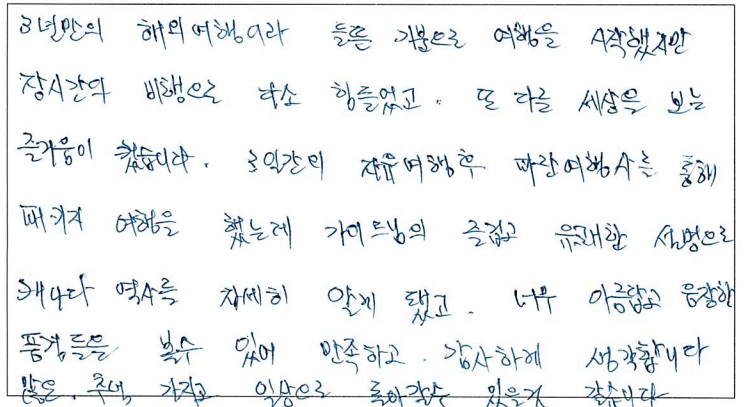 3년만의 해외여행이라 들뜬 기분으로 여행을 시작했지만
장시간의 비행으로 다소 힘들었고. 또 다른 세상을 보는
즐거움이 컸습니다. 3일간의 자유여행후 파란여행사를 통해
패키지 여행을 했는데 가이드님의 즐겁고 유쾌한 설명으로
캐나다 역사를 자세히 알게 됐고. 너무 아름답고 웅장한
풍경들을 볼수 있어 만족하고. 감사하게 생각합니다
많은. 추억 가지고 일상으로 돌아갈수 있을것 같습니다